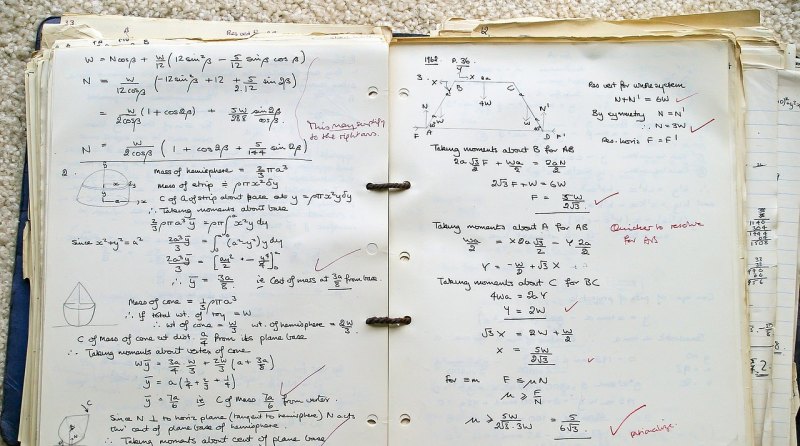 33
W = N cosβ + W/12 (12 sin²β - 5/12 sinβ cosβ)
N = W/12cosβ (-12 sin²β + 12 + 5/2.12 sin2β)
= W/2cosβ (1 + cos2β) + 5W/288 sin2β/cosβ.
This may simplify
to the right ans.
N = W/2cosβ (1 + cos2β + 5/144 sin2β)
2.
Mass of hemisphere = 2/3 ρπa³
Mass of strip = ρπx²δy
C of G of strip about base as y = ρπx²yδy
∴ Taking moments about base
2/3 ρπa³ȳ = ρπ∫x²y dy
since x²+y² = a²
2a³ȳ/3 = ∫(a²-y²)y dy
2a³ȳ/3 = [ay²/2 - y⁴/4]
∴ ȳ = 3a/8 ie Cent of mass at 3a/8 from base.
Mass of cone = 1/3 ρπa³
∴ If total wt. of toy = W
∴ wt of cone = W/3 wt. of hemisphere = 2W/3
C of Mass of cone at dist. a/4 from its plane base
∴ Taking moments about vertex of cone
Wȳ = 3a/4 W/3 + 2W/3 (a + 3a/8)
ȳ = 7a/6 ie C of mass 7a/6 from vertex.
Since N ⊥ to horiz plane (tangent to hemisphere) N acts
thro' cent of plane base of hemisphere.
∴ Taking moments about cent of plane base
1968 P.36
3.
X
B
C
4W
N
N'
W
W
F
A
D
F'
Res vert for whole system
N + N' = 6W
By symmetry N = N'
∴ N = 3W
Res. horiz F = F'
Taking moments about B for AB
2a√3/2 F + Wa/2 = 2aN/2
2√3F + W = 6W
F = 5W/2√3
Taking moments about A for AB
Quicker to resolve
for AB
Wa/2 = X2a√3/2 - Y 2a/2
Y = -W/2 + √3 X
Taking moments about C for BC
4Wa = 2aY
Y = 2W
√3X = 2W + W/2
X = 5W/2√3
F ≤ μN
μ ≥ F/N
μ ≥ 5W/2√3.3W = 5/6√3
rationalize.